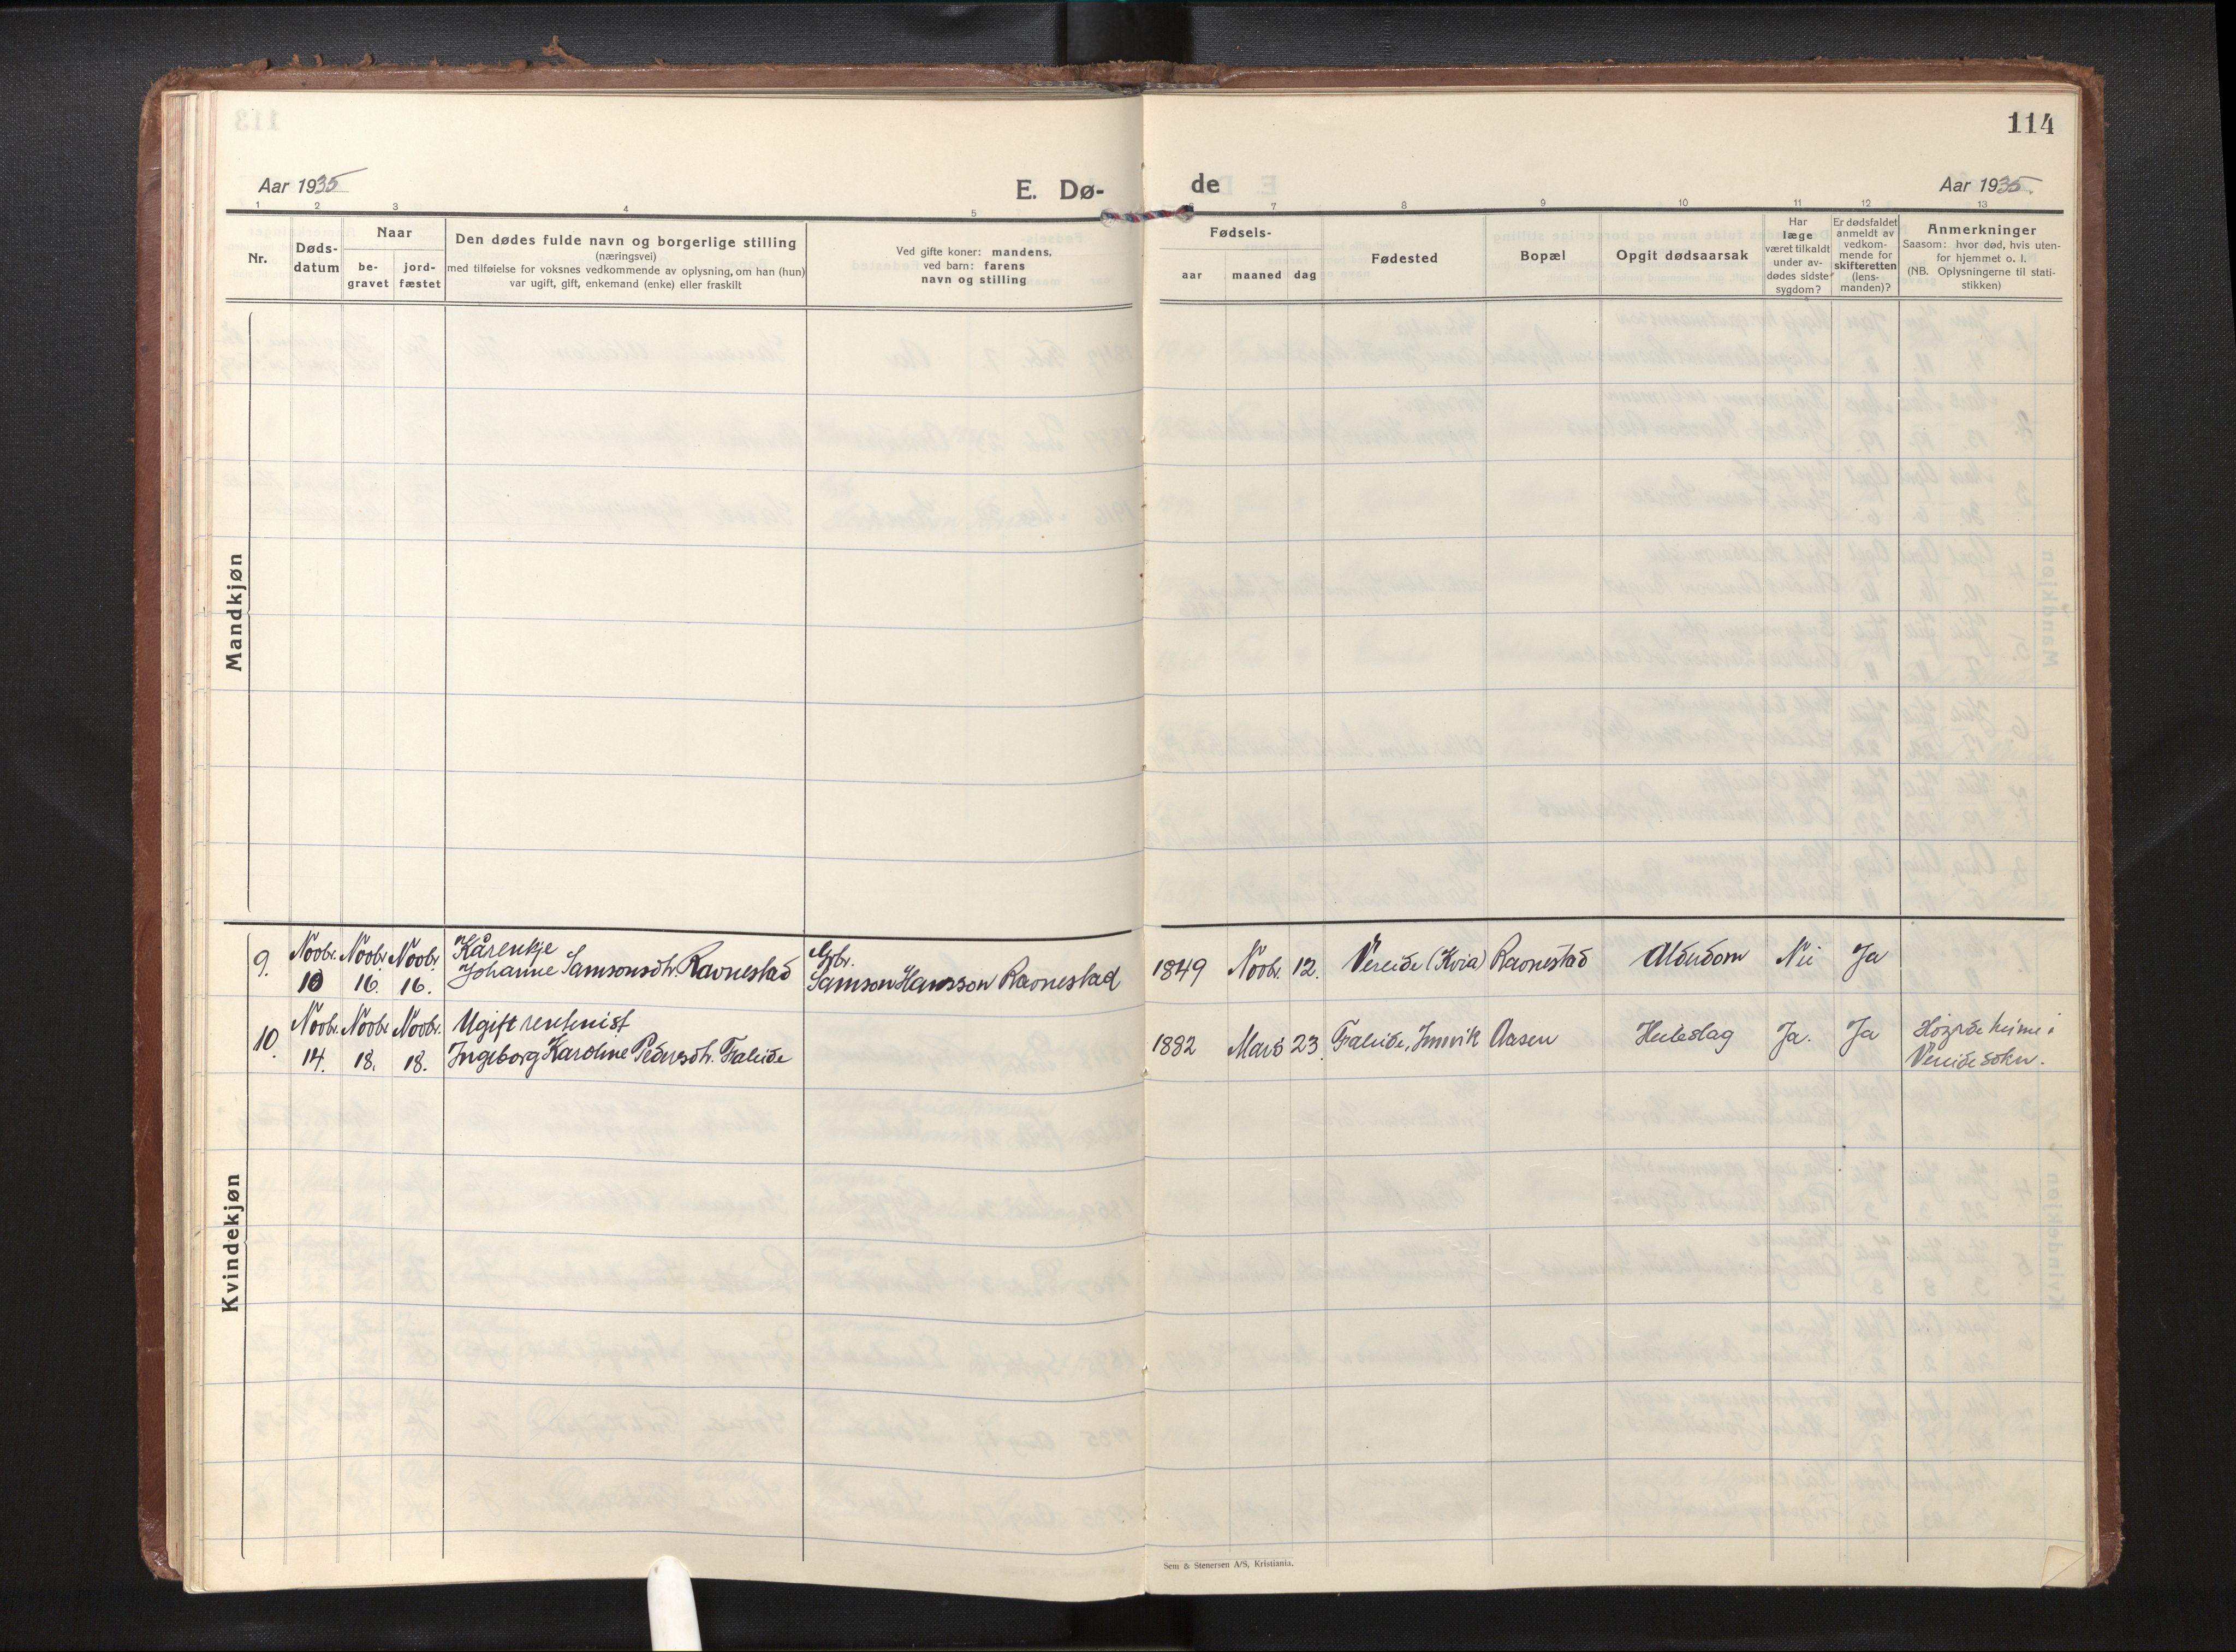 114
Aar 1935
E. Dø-
de
Aar 1935.
1 2 3 4 5 6 7 8 9 10 11 12 13
Nr.
Døds-
datum
Naar
be-
gravet
jord-
fæstet
Den dødes fulde navn og borgerlige stilling
(næringsvei)
med tilføielse for voksnes vedkommende av oplysning, om han (hun)
var ugift, gift, enkemand (enke) eller fraskilt
Ved gifte koner: mandens,
ved barn: farens
navn og stilling
Fødsels-
aar maaned dag
Fødested
Bopæl
Opgit dødsaarsak
Har
læge
været tilkaldt
under av-
dødes sidste
sygdom?
Er dødsfaldet
anmeldt av
vedkom-
mende for
skifteretten
(lens-
manden)?
Anmerkninger
Saasom: hvor død, hvis uten-
for hjemmet o. l.
(NB. Oplysningerne til stati-
stikken)
Mandkjøn
Kvindekjøn
9. Novbr. 10 Novbr. 16. Novbr. 16.
Kårenkje
Johanne Samsonsdtr. Ravnestad
Gbr.
Samson Hansson Ravnestad
1849 Novbr. 12. Vereide (Kvia) Ravnestad Alderdom Nei Ja
10. Novbr. 14. Novbr. 18. Novbr. 18.
Ugift rentenist
Ingeborg Karoline Pedersdtr. Faleide
1882 Mars 23. Faleide, Innvik Aasen Heileslag Ja. Ja
Vereide sokn.
Sem & Stenersen A/S, Kristiania.